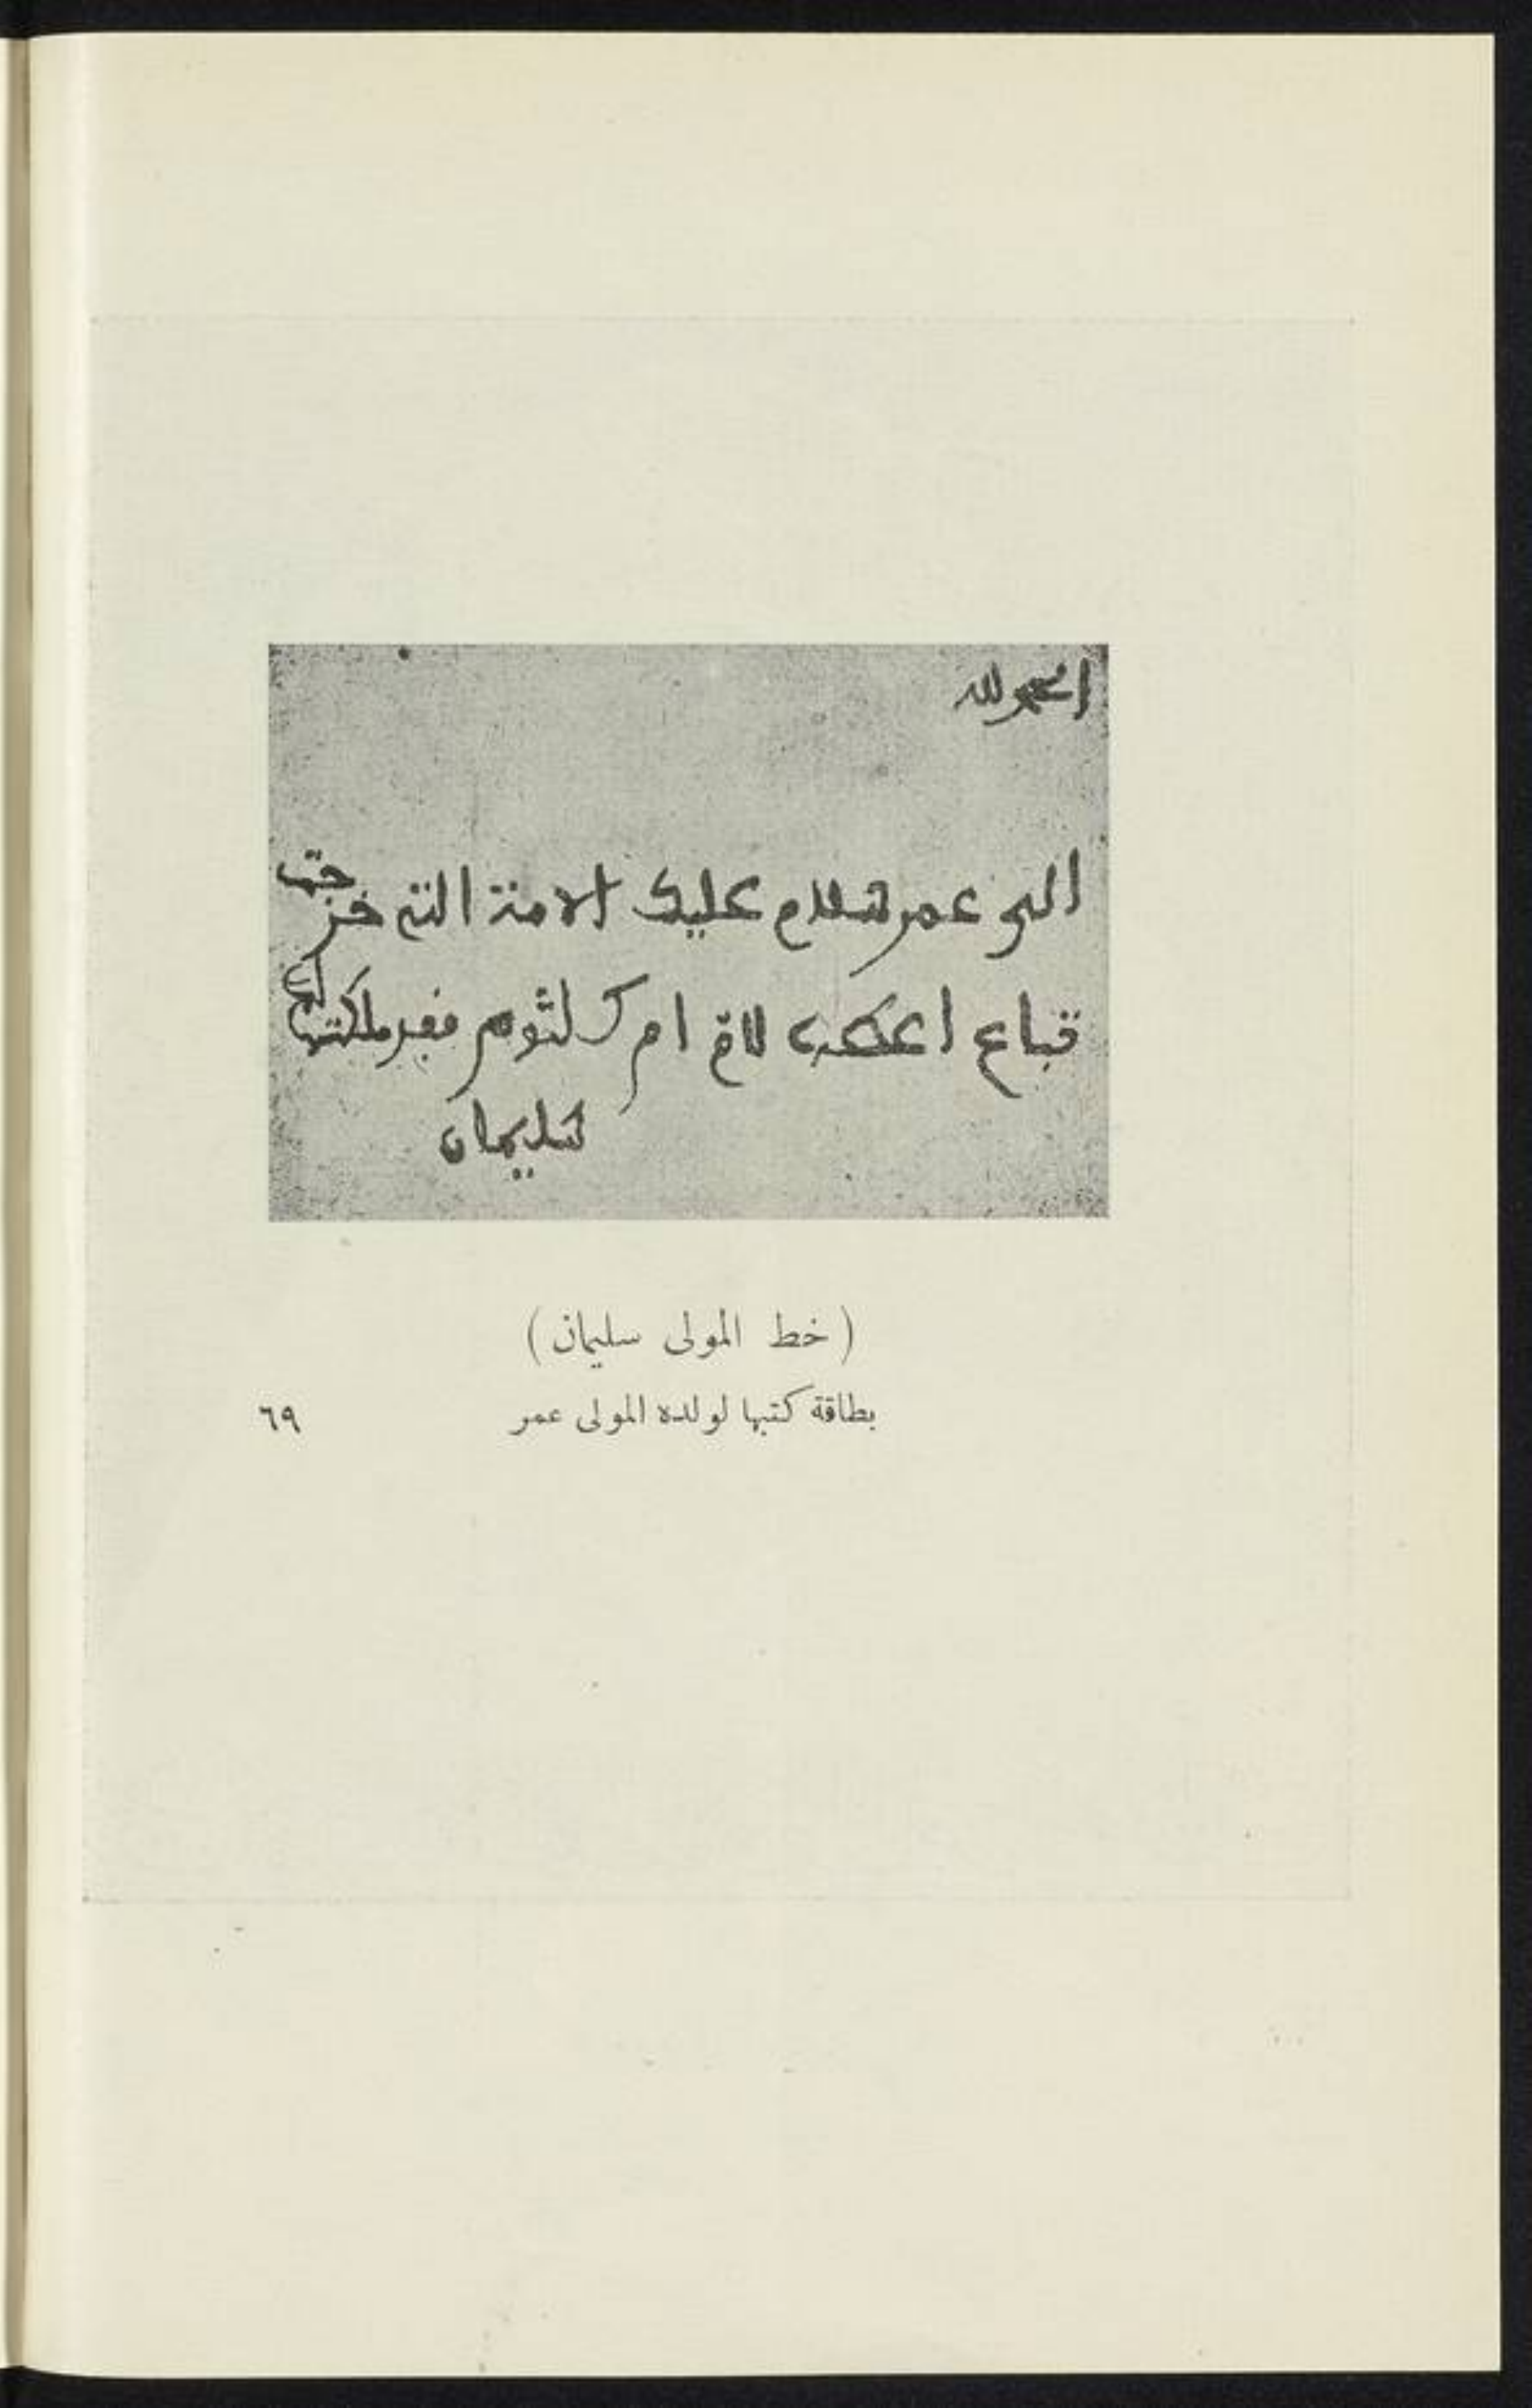 الحمد لله
الى عمر سلام عليك الامة التي خرجت
تباع اعطه للام ام كلثوم فقد ملكتها لها
سليمان
(خط المولى سليمان)
بطاقة كتبها لولده المولى عمر
٦٩